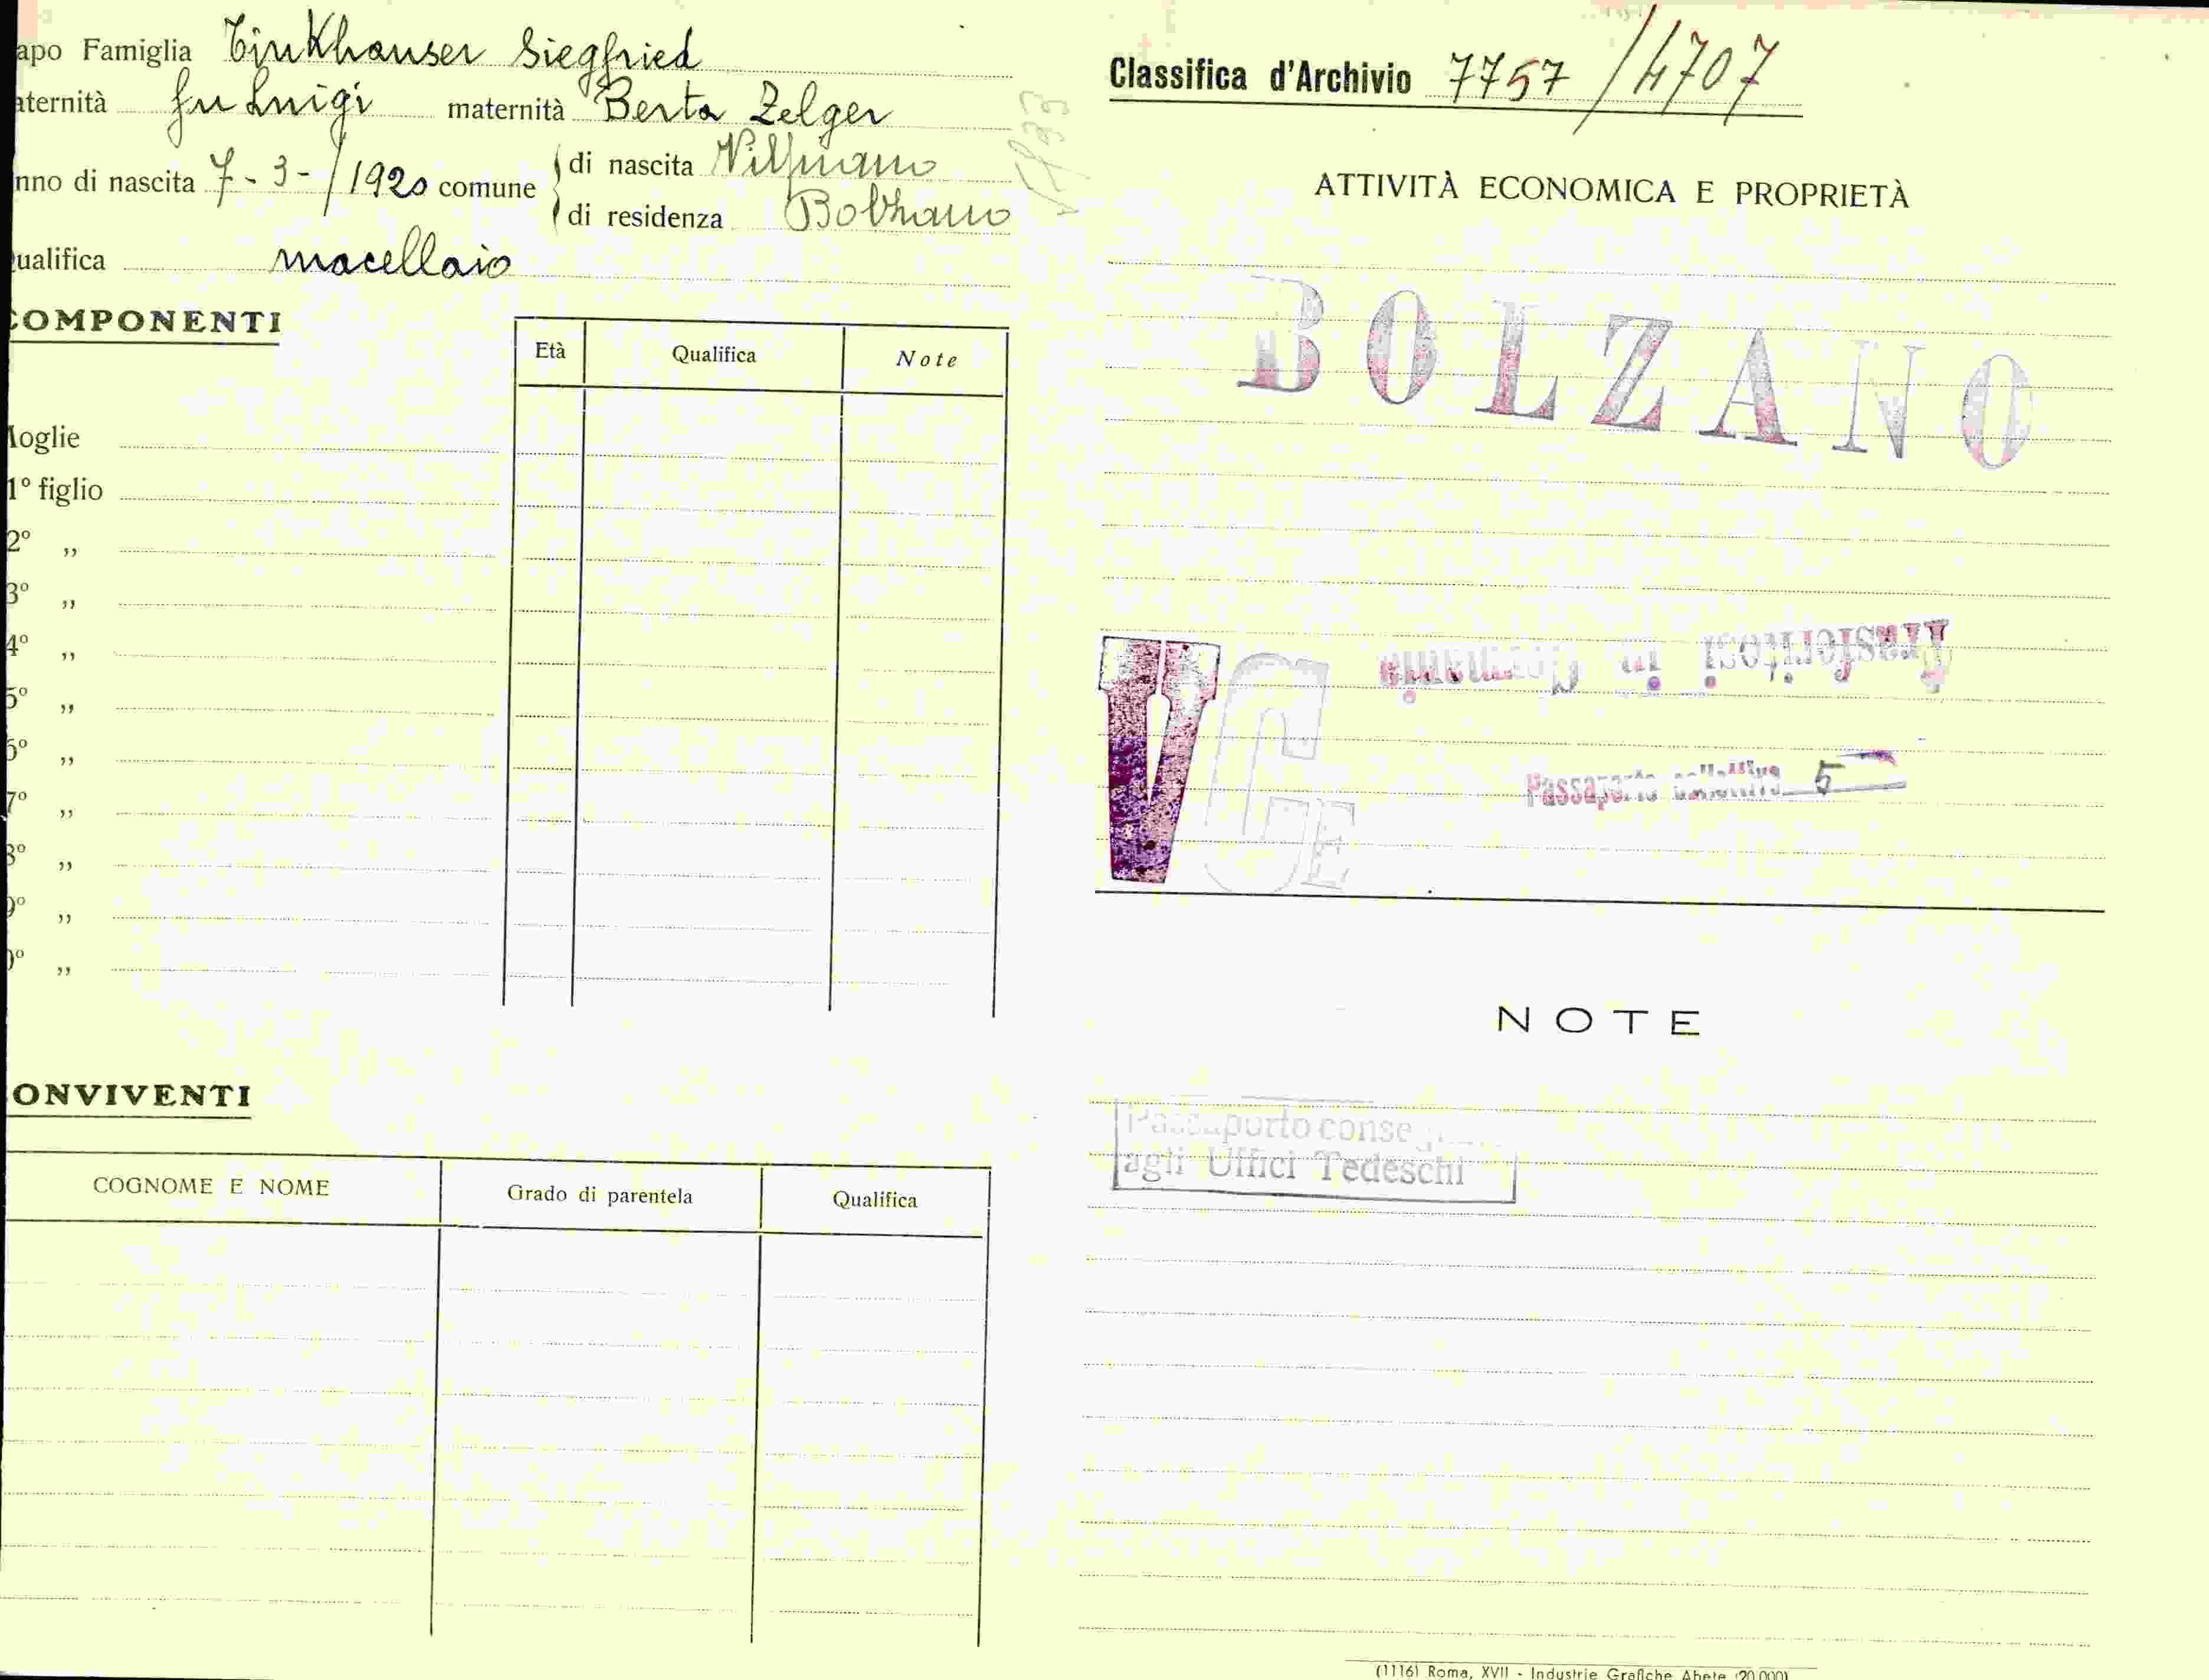 apo Famiglia Tinkhauser Siegfried
aternità fu Luigi maternità Berta Zelger
nno di nascita 7-3-/1920 comune di nascita
di residenza Bolzano
ualifica macellaio
COMPONENTI
Età Qualifica Note
Moglie
1º figlio
2º „
3º „
4º „
5º „
6º „
7º „
8º „
9º „
0º „
ONVIVENTI
COGNOME E NOME Grado di parentela Qualifica
Classifica d'Archivio 7757 / 4707
ATTIVITÀ ECONOMICA E PROPRIETÀ
BOLZANO
Trasferitosi in Germania
V G E
Passaporto collettivo 5
NOTE
Passaporto conse
agli Uffici Tedeschi
(1116) Roma, XVII - Industrie Grafiche Abete (20.000)